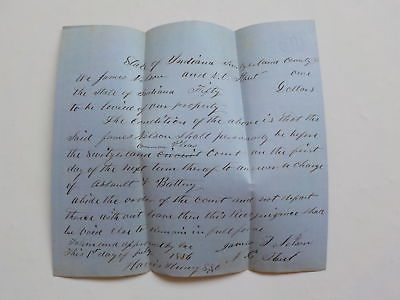 State of Indiana Switzerland County
We James Nelson and N. C. Hart owe
the State of Indiana Fifty Dollars
to be levied of our property
The Condition of the above is that the
said James Nelson shall personally be before
Common Pleas
the Switzerland Circuit Court on the first
day of the next term thereof to answer to Charge
of Assault & Battery
abide the order of the Court and not depart
thence with out leave then this Recognizance shall
be void else to remain in full force
Taken and approved by me
This 1st day of July 1856
James Nelson
Harris Henry